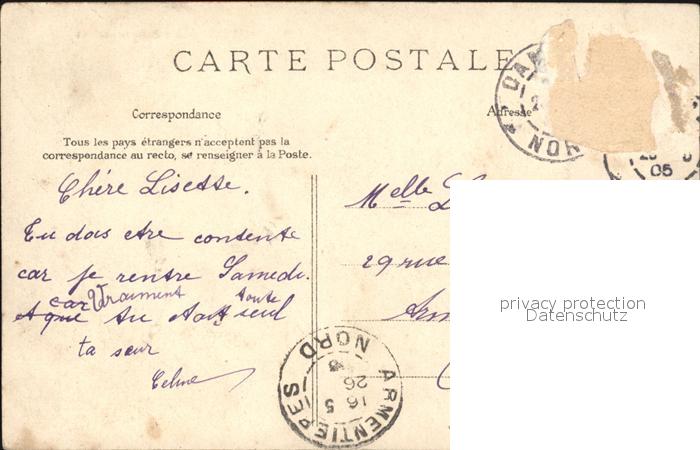 CARTE POSTALE
Correspondance
Adresse
Tous les pays étrangers n'acceptent pas la
correspondance au recto, se renseigner à la Poste.
Chére Lisette.
Tu dois etre contente
car je rentre Samedi.
car Vraiment toute
tu seul
ta sœur
Celine
Melle
29 rue
Arm
NORD
ARMENTIERES
16 5
26
CAM
NOR
05
privacy protection
Datenschutz